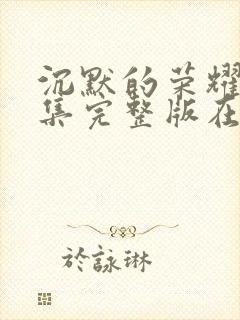 沉默的荣耀
集完整版在
於詠琳